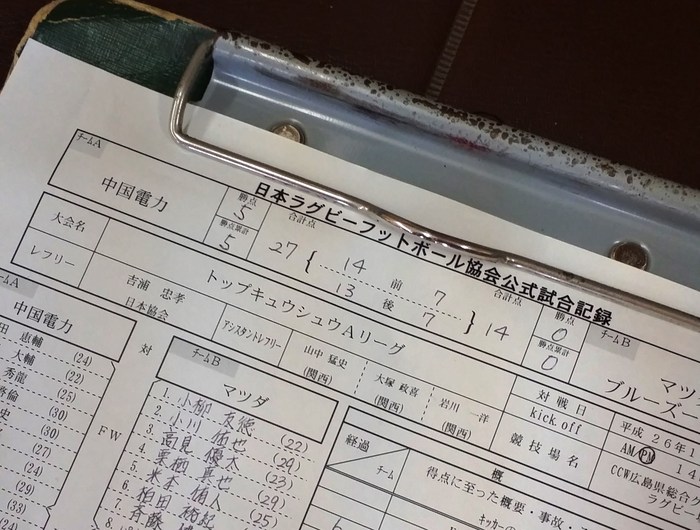 日本ラグビーフットボール協会公式試合記録
チームA
中国電力
勝点
5
勝点累計
5
合計点
27 { 14 前 7 } 14
13 後 7
合計点
勝点
0
勝点累計
0
チームB
マツ
ブルーズ
大会名
トップキュウシュウAリーグ
対戦日
平成 26年1
kick off
AM/PM
レフリー
吉浦 忠孝
日本協会
アシスタントレフリー
山中 猛史
(関西)
大塚 政喜
(関西)
岩川 一洋
(関西)
競技場名
CCW広島県総合グ
ラグビ
中国電力
対
チームB
マツダ
FW
田 恵輔 (24)
大輔 (22)
秀龍 (25)
(30)
(30)
(27)
(24)
(29)
(33)
(24)
1. 小柳 友悠 (22)
2. 小川 (29)
3. 高見 優太 (23)
4. (29)
5. (25)
6. 柏田
7. 斉藤
8.
経過
チーム
概
得点に至った概要・事故
キッカー